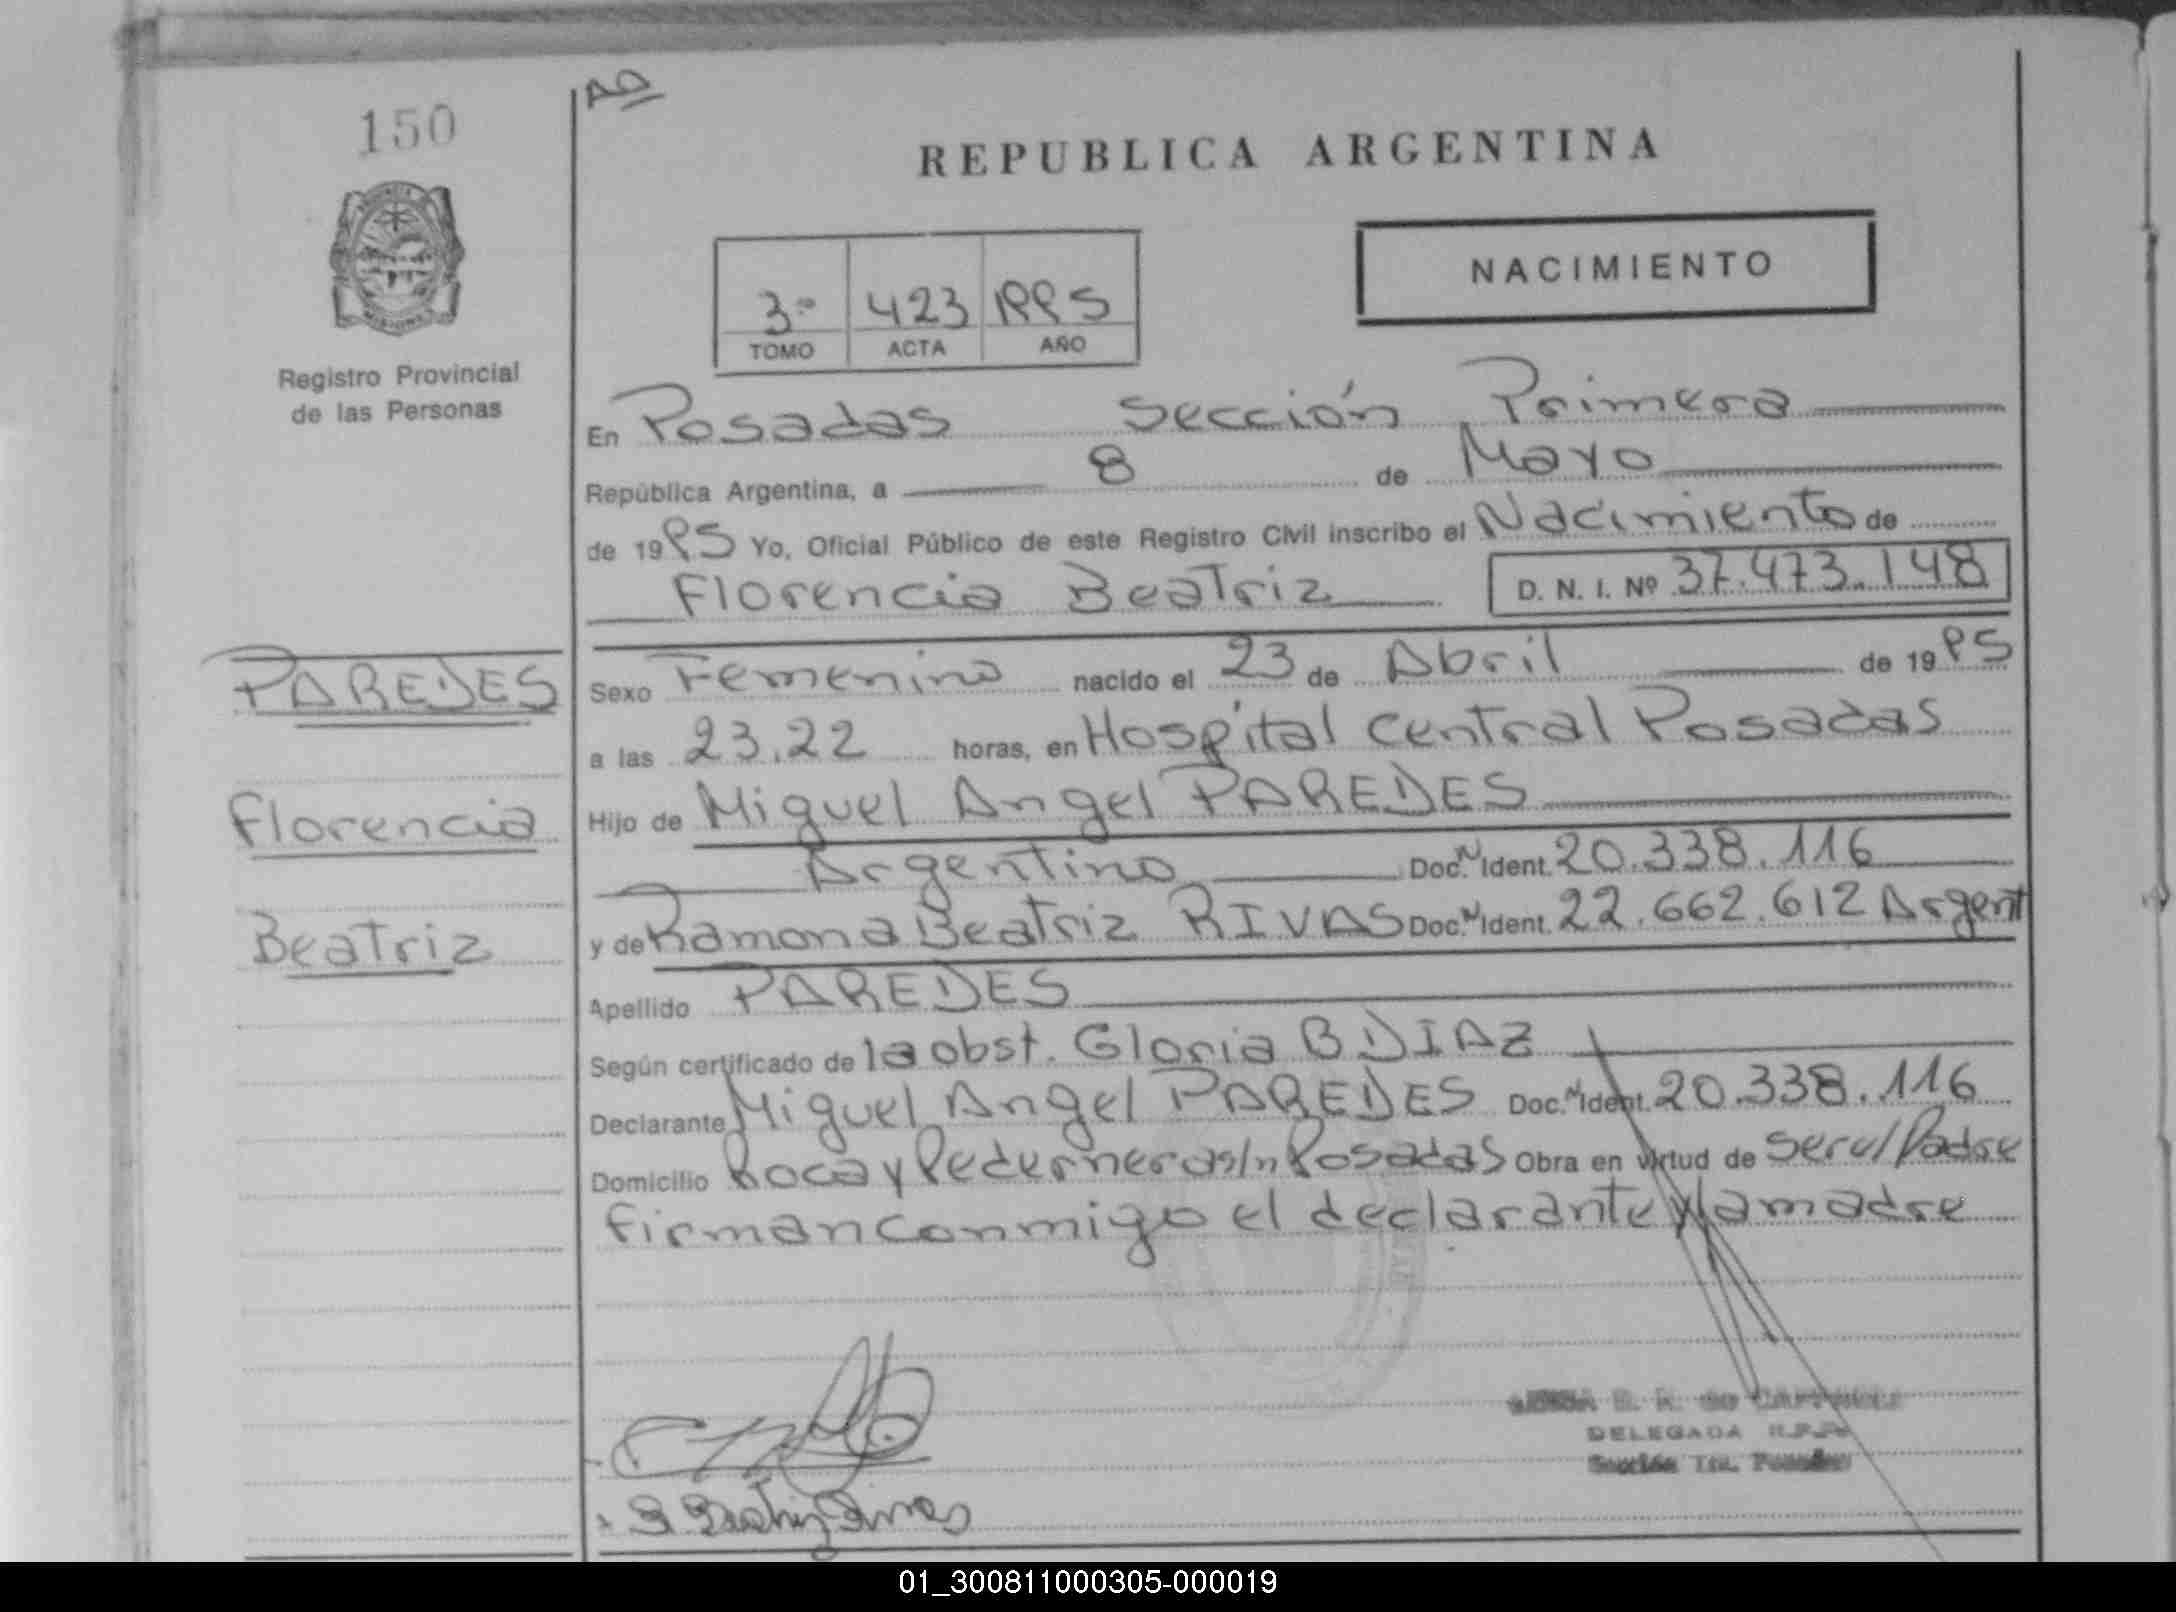 150
AD
REPUBLICA ARGENTINA
NACIMIENTO
3º 423 1995
TOMO ACTA AÑO
Registro Provincial
de las Personas
En Posadas Sección Primera
República Argentina, a 8 de Mayo
de 1995 Yo, Oficial Público de este Registro Civil inscribo el Nacimiento de
Florencia Beatriz D. N. I. Nº 37.473.148
PAREDES
Florencia
Beatriz
Sexo Femenino nacido el 23 de Abril de 1995
a las 23.22 horas, en Hospital Central Posadas
Hijo de Miguel Angel PAREDES
Argentino Doc. N Ident. 20.338.116
y de Ramona Beatriz RIVAS Doc. N Ident. 22.662.612 Argent
Apellido PAREDES
Según certificado de la obst. Gloria B DIAZ
Declarante Miguel Angel PAREDES Doc. N Ident. 20.338.116
Domicilio Roca y Pedernera s/n Posadas Obra en virtud de ser el Padre
firman conmigo el declarante y la madre
DELEGADA R.P.P.
Sección 1ra. Posadas
01_300811000305-000019